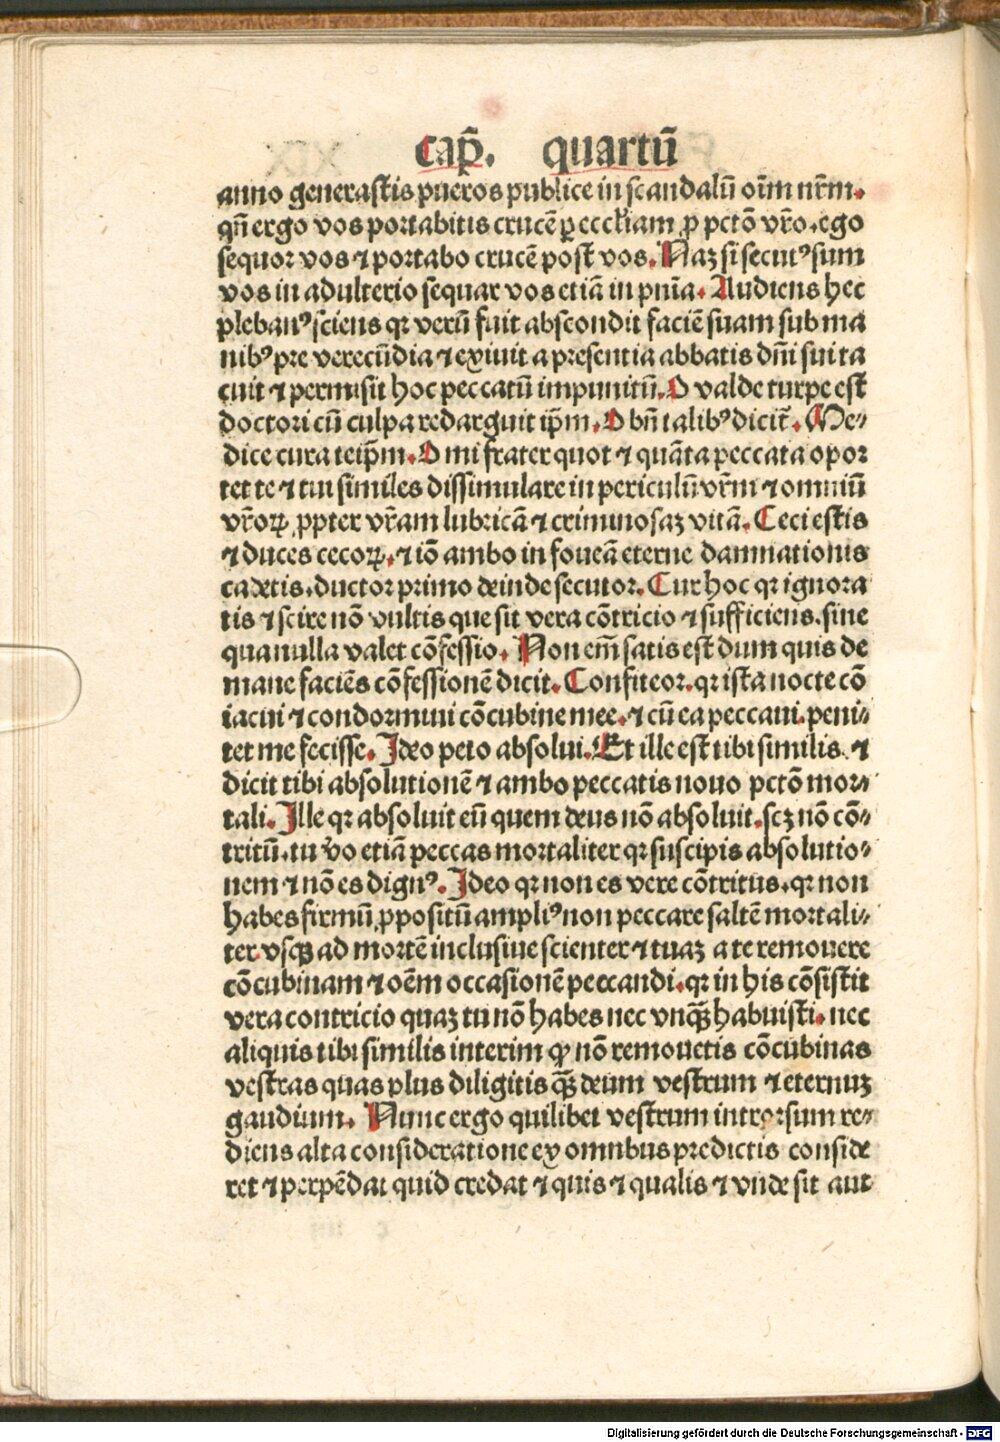 Cap̃. quartũ
anno generastis pueros publice in scandalũ oĩm nr̃m.
qñ ergo vos portabitis crucẽ ꝑ ecclʼiam ꝓ pctõ vr̃o. ego
sequor vos ⁊ portabo crucẽ post vos. Naꝫ si secutꝰ sum
vos in adulterio sequar vos etiã in pnĩa. Audiens hec
plebanꝰ sciens qꝛ verũ fuit abscondit faciẽ suam sub ma
nibꝰ pre verecũdia ⁊ exiuit a presentia abbatis dñi sui ta
cuit ⁊ permisit hoc peccatũ impunitũ. O valde turpe est
doctori cũ culpa redarguit ip̃m. O bñ talibꝰ dicit̃. Me⸗
dice cura teip̃m. O mi frater quot ⁊ quãta peccata opor
tet te ⁊ tui similes dissimulare in periculũ vr̃m ⁊ omniũ
vr̃oꝝ ꝓpter vr̃am lubricã ⁊ criminosaꝫ vitã. Ceci estis
⁊ duces cecoꝝ. ⁊ iõ ambo in foueã eterne damnationis
cadetis. ductor primo deinde secutor. Cur hoc qꝛ ignora
tis ⁊ scire nõ vultis que sit vera cõtricio ⁊ sufficiens. sine
qua nulla valet cõfessio. Non em̃ satis est dum quis de
mane faciẽs cõfessionẽ dicit. Confiteor. qꝛ ista nocte cõ
iacui ⁊ condormiui cõcubine mee. ⁊ cũ ea peccaui. peni⸗
tet me fecisse. Ideo peto absolui. Et ille est tibi similis. ⁊
dicit tibi absolutionẽ ⁊ ambo peccatis nouo pctõ mor⸗
tali. Ille qꝛ absoluit eũ quem deus nõ absoluit. scꝫ nõ cõ⸗
tritũ. tu ṽo etiã peccas mortaliter qꝛ suscipis absolutio⸗
nem ⁊ nõ es dignꝰ. Ideo qꝛ non es vere cõtritus. qꝛ non
habes firmũ ꝓpositũ ampliꝰ non peccare saltẽ mortali⸗
ter vsqꝫ ad mortẽ inclusiue scienter ⁊ tuaꝫ a te remouere
cõcubinam ⁊ oẽm occasionẽ peccandi. qꝛ in his cõsistit
vera contricio quaꝫ tu nõ habes nec vnq̃ꝫ habuisti. nec
aliquis tibi similis interim ꝙ nõ remouetis cõcubinas
vestras quas plus diligitis q̃ꝫ deum vestrum ⁊ eternuꝫ
gaudium. Nunc ergo quilibet vestrum introrsum re⸗
diens alta consideratione ex omnibus predictis conside
ret ⁊ perpẽdat quid credat ⁊ quis ⁊ qualis ⁊ vnde sit aut
Digitalisierung gefördert durch die Deutsche Forschungsgemeinschaft - DFG